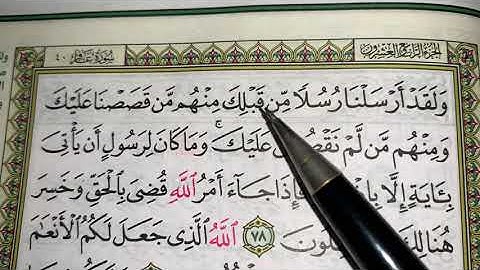 سورة غافر ٤٠ الجزء الرابع والعشرون
وَلَقَدْ أَرْسَلْنَا رُسُلًا مِّن قَبْلِكَ مِنْهُم مَّن قَصَصْنَا عَلَيْكَ
وَمِنْهُم مَّن لَّمْ نَقْصُصْ عَلَيْكَ ۗ وَمَا كَانَ لِرَسُولٍ أَن يَأْتِىَ
بِـَٔايَةٍ إِلَّا فَإِذَا جَآءَ أَمْرُ ٱللَّهِ قُضِىَ بِٱلْحَقِّ وَخَسِرَ
هُنَالِكَ ٧٨ ٱللَّهُ ٱلَّذِى جَعَلَ لَكُمُ ٱلْأَنْعَٰمَ